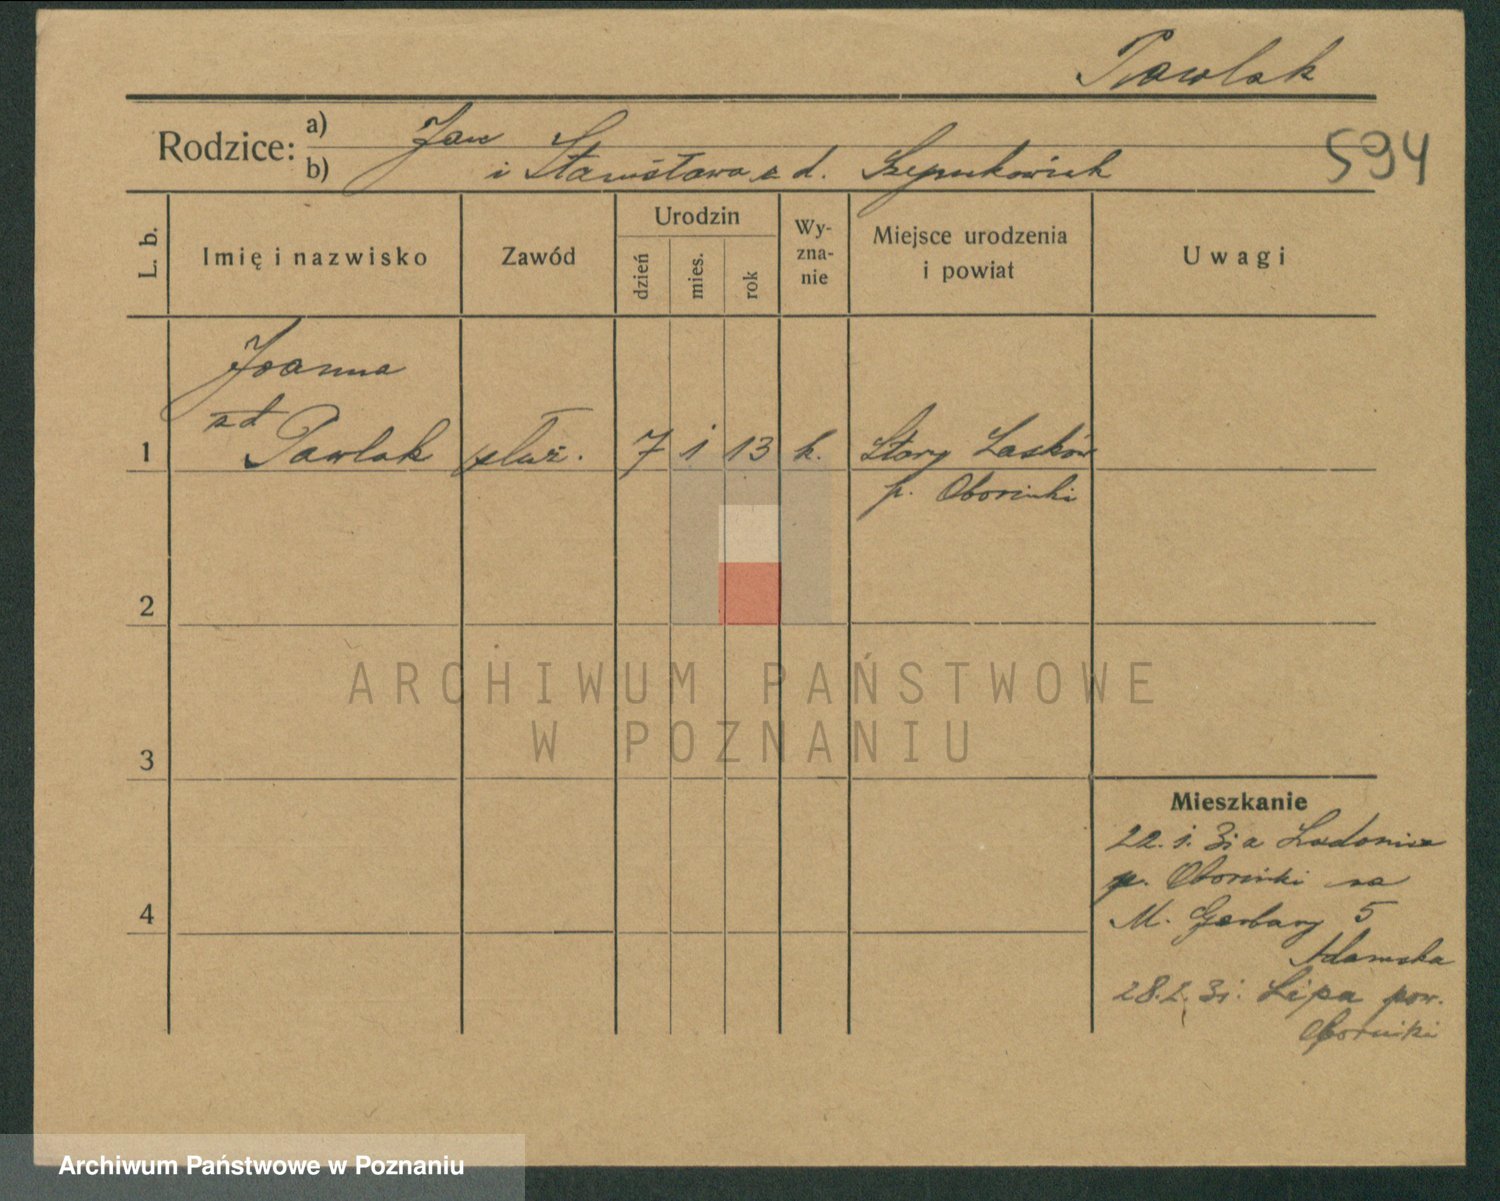 Pawlak
Rodzice:
a) Jan
b) i Stanisława z d.
594
L. b.
Imię i nazwisko
Zawód
Urodzin
dzień
mies.
rok
Wy-
zna-
nie
Miejsce urodzenia
i powiat
Uwagi
Joanna
zd
1 Pawlak służ. 7 1 13 k. Stary
p. Oborniki
2
3
4
ARCHIWUM PAŃSTWOWE
W POZNANIU
Mieszkanie
22. 1. 31 z
p. Oborniki na
M. Garbary 5
Adamska
28. 2. 31. Lipa pow.
Oborniki
Archiwum Państwowe w Poznaniu